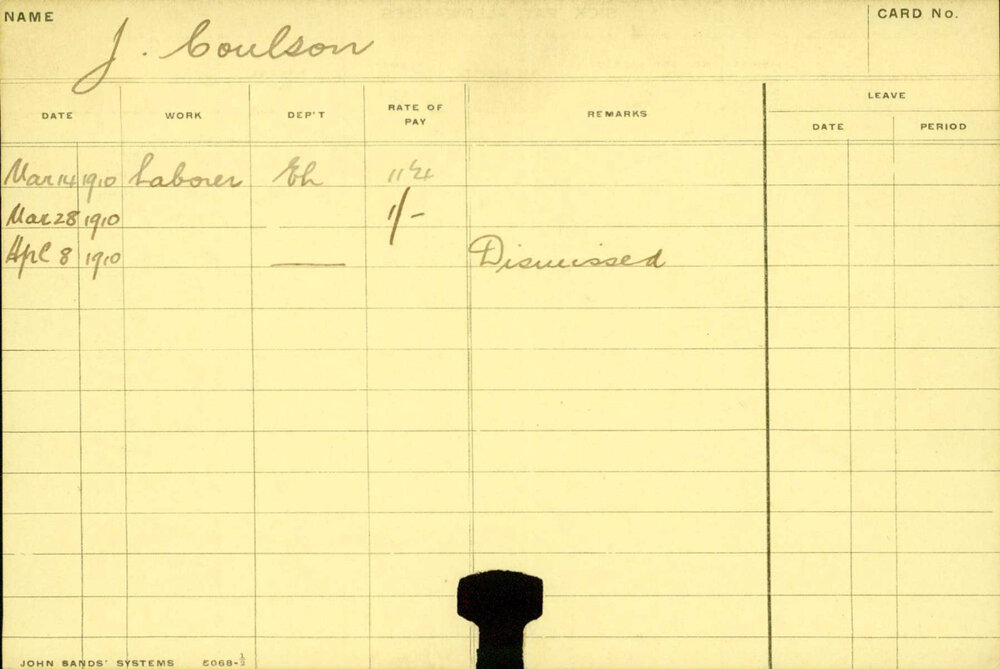 NAME J. Coulson CARD No.
LEAVE
DATE WORK DEP'T RATE OF PAY REMARKS DATE PERIOD
Mar 14 1910 Laborer
Mar 28 1910 1/-
Apl 8 1910 Dismissed
JOHN SANDS' SYSTEMS 5068-½